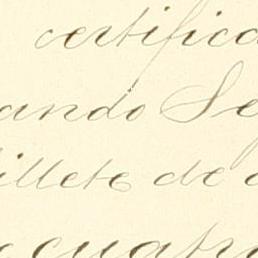 certifica
ando Se
illete de c
e cuatro